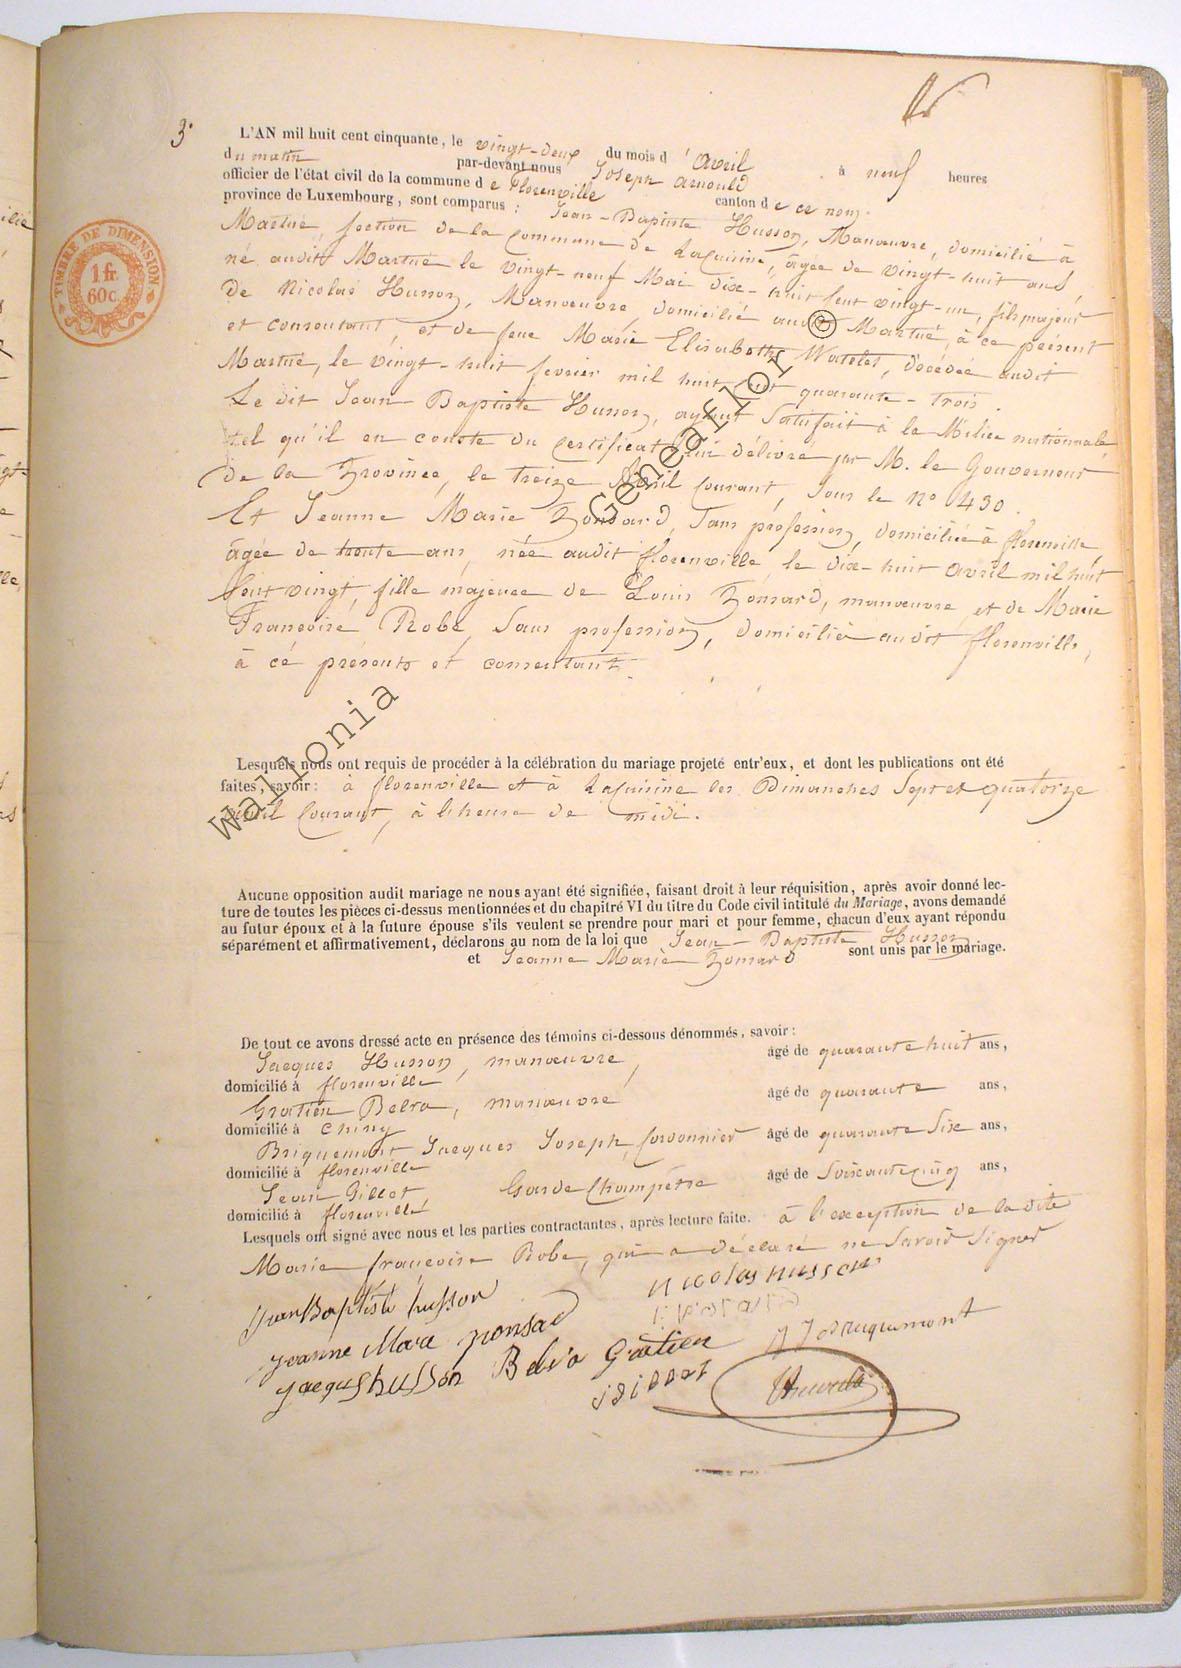 3.
L'AN mil huit cent cinquante, le vingt-deux du mois d'Avril à neuf heures
du matin par-devant nous Joseph Arnould
officier de l'état civil de la commune de Florenville canton de ce nom
province de Luxembourg, sont comparus : Jean-Baptiste Husson, Manoeuvre, domicilié à
Martué, section de la commune de LaCuisine, âgée de vingt-huit ans,
né audit Martué le vingt-neuf Mai dix-huit cent vingt-un, fils majeur
de Nicolas Husson, Manoeuvre, domicilié audit Martué, à ce présent
et consentant, et de feue Marie Elisabeth Watelet, décédée audit
Martué, le vingt-huit fevrier mil huit cent quarante-trois.
Le dit Jean Baptiste Husson, ayant Satisfait à la Milice nationnale
tel qu'il en conste du certificat lui délivré par M. le Gouverneur
de la Province, le treize Avril Courant, Sous le No 430.
Et Jeanne Marie Ponsard, Sans profession, domiciliée à florenville
âgée de trente ans, née audit florenville le dix-huit Avril mil huit
Cent vingt, fille majeure de Louis Ponsard, manoeuvre, et de Marie
Francoise Robe, Sans profession, domicilié audit florenville,
à cé présents et consentant.
Lesquels nous ont requis de procéder à la célébration du mariage projeté entr'eux, et dont les publications ont été
faites, savoir : à florenville et à LaCuisine les Dimanches Sept et quatorze
avril Courant, à l'heure de midi.
Aucune opposition audit mariage ne nous ayant été signifiée, faisant droit à leur réquisition, après avoir donné lec-
ture de toutes les pièces ci-dessus mentionnées et du chapitre VI du titre du Code civil intitulé du Mariage, avons demandé
au futur époux et à la future épouse s'ils veulent se prendre pour mari et pour femme, chacun d'eux ayant répondu
séparément et affirmativement, déclarons au nom de la loi que Jean-Baptiste Husson
et Jeanne Marie Ponsard sont unis par le mariage.
De tout ce avons dressé acte en présence des témoins ci-dessous dénommés, savoir :
Jacques Husson, manoeuvre, âgé de quarante huit ans,
domicilié à florenville
Gratien Belva, manoeuvre âgé de quarante ans,
domicilié à Chiny
Briquemont Jacques Joseph, Cordonnier âgé de quarante Six ans,
domicilié à florenville
Jean Gillet, Garde Champêtre âgé de Soixante cinq ans,
domicilié à florenville
Lesquels ont signé avec nous et les parties contractantes, après lecture faite. à l'exception de la dite
Marie francoise Robe, qui a déclaré ne Savoir Signer
Jean Baptiste husson
nicolas husson
Jeanne Marie ponsard
Jacques husson Belva Gratien
J J Briquemont
TIMBRE DE DIMENSION
1 fr.
60c.
Wallonia
Geneaflor ©